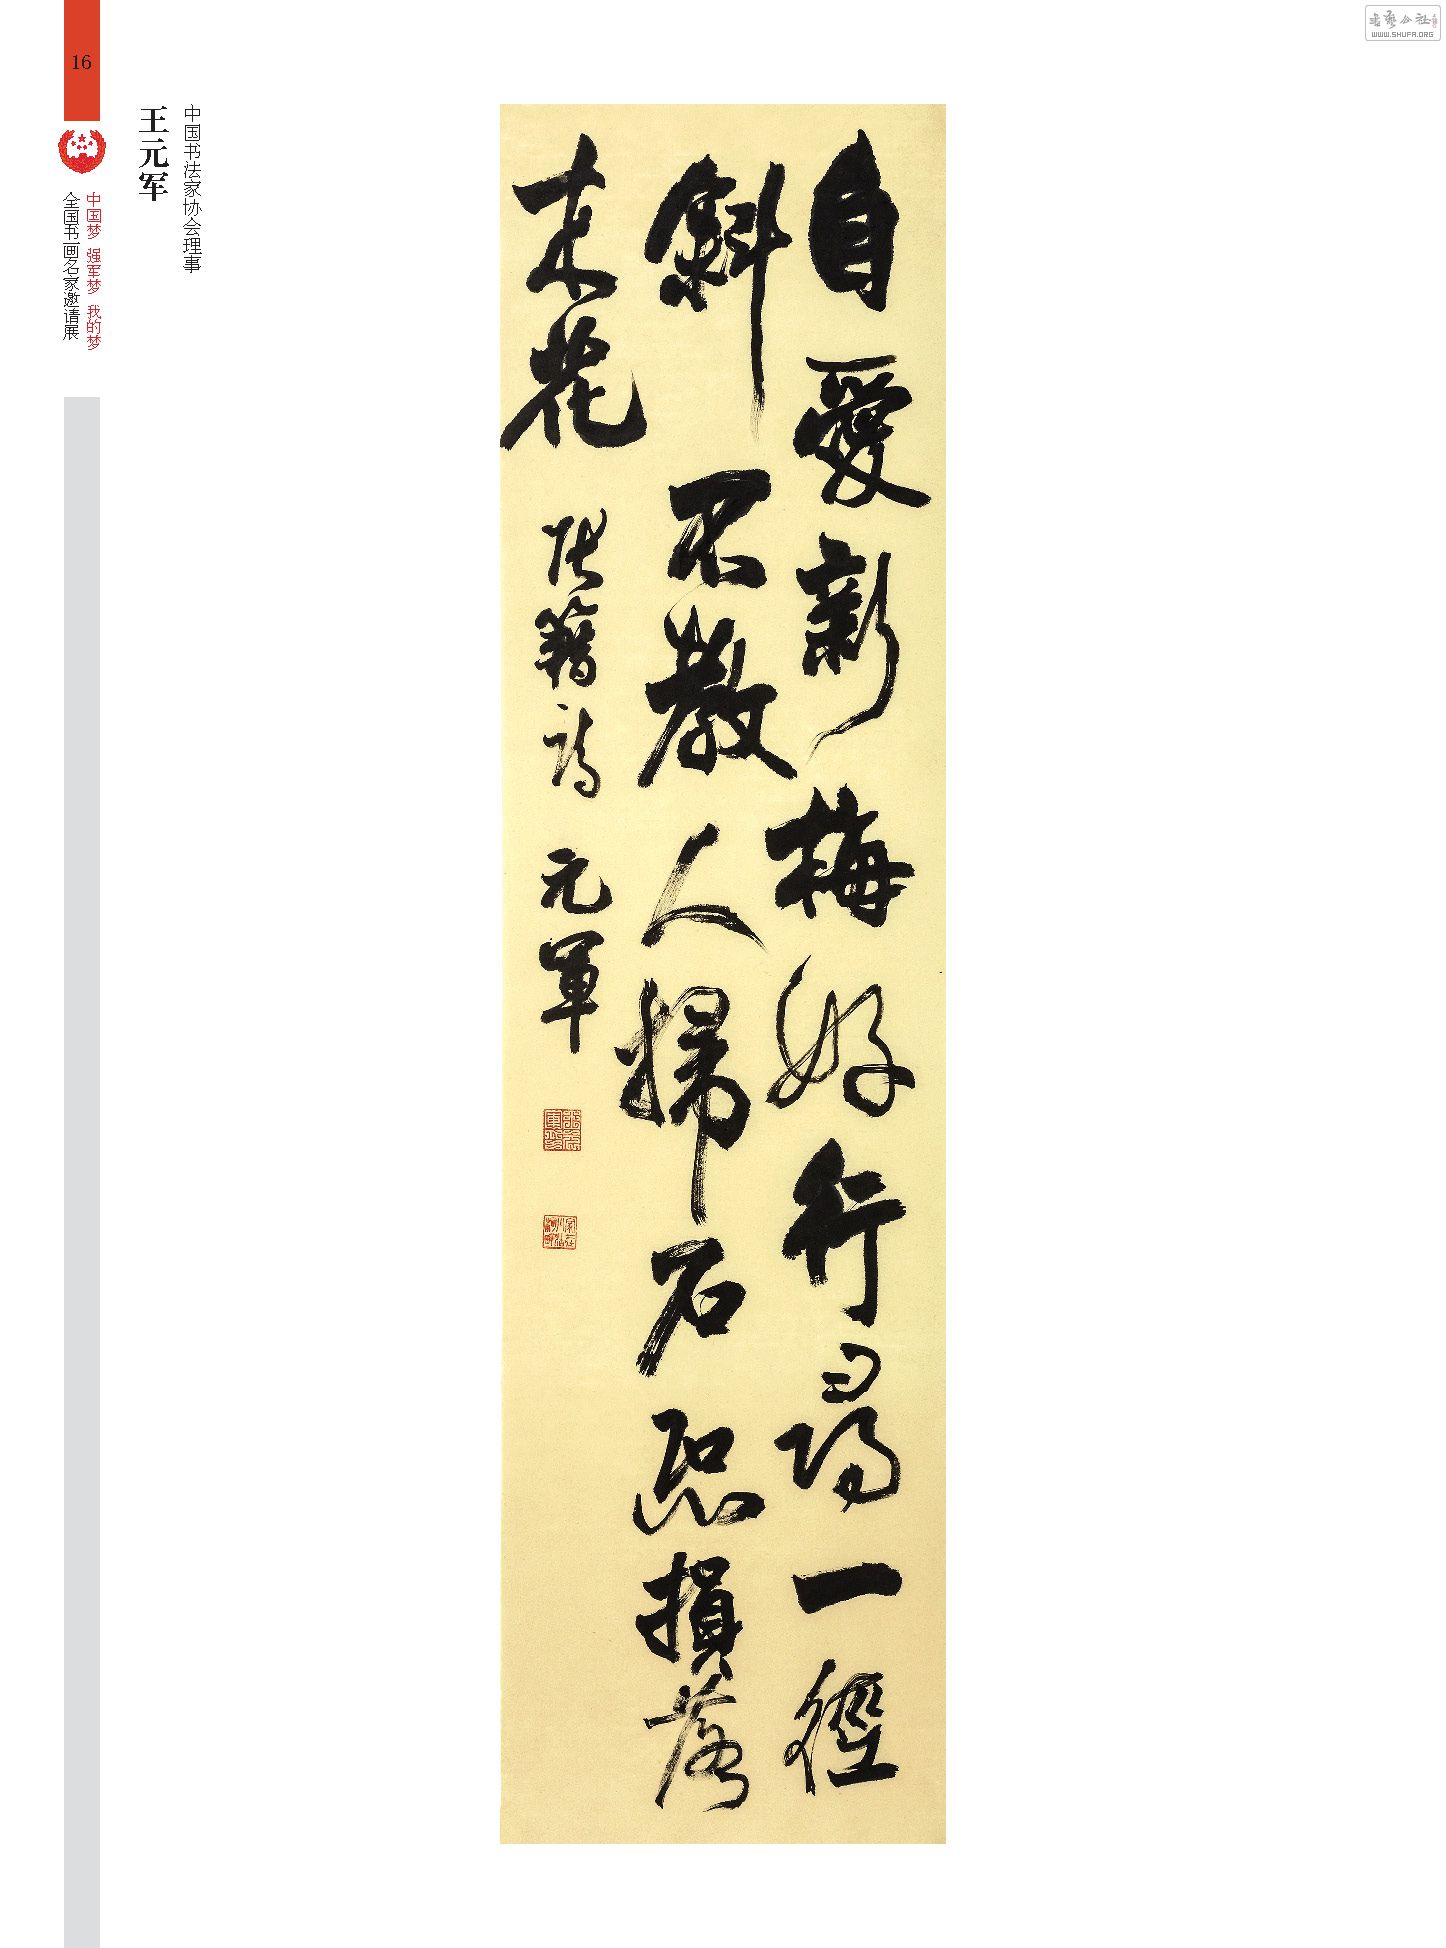 16
中国梦 强军梦 我的梦
全国书画名家邀请展
中国书法家协会理事
王元军
自愛新梅好行尋一徑
斜不教人掃石恐損落
来花
张籍詩 元軍
書藝公社
WWW.SHUFA.ORG